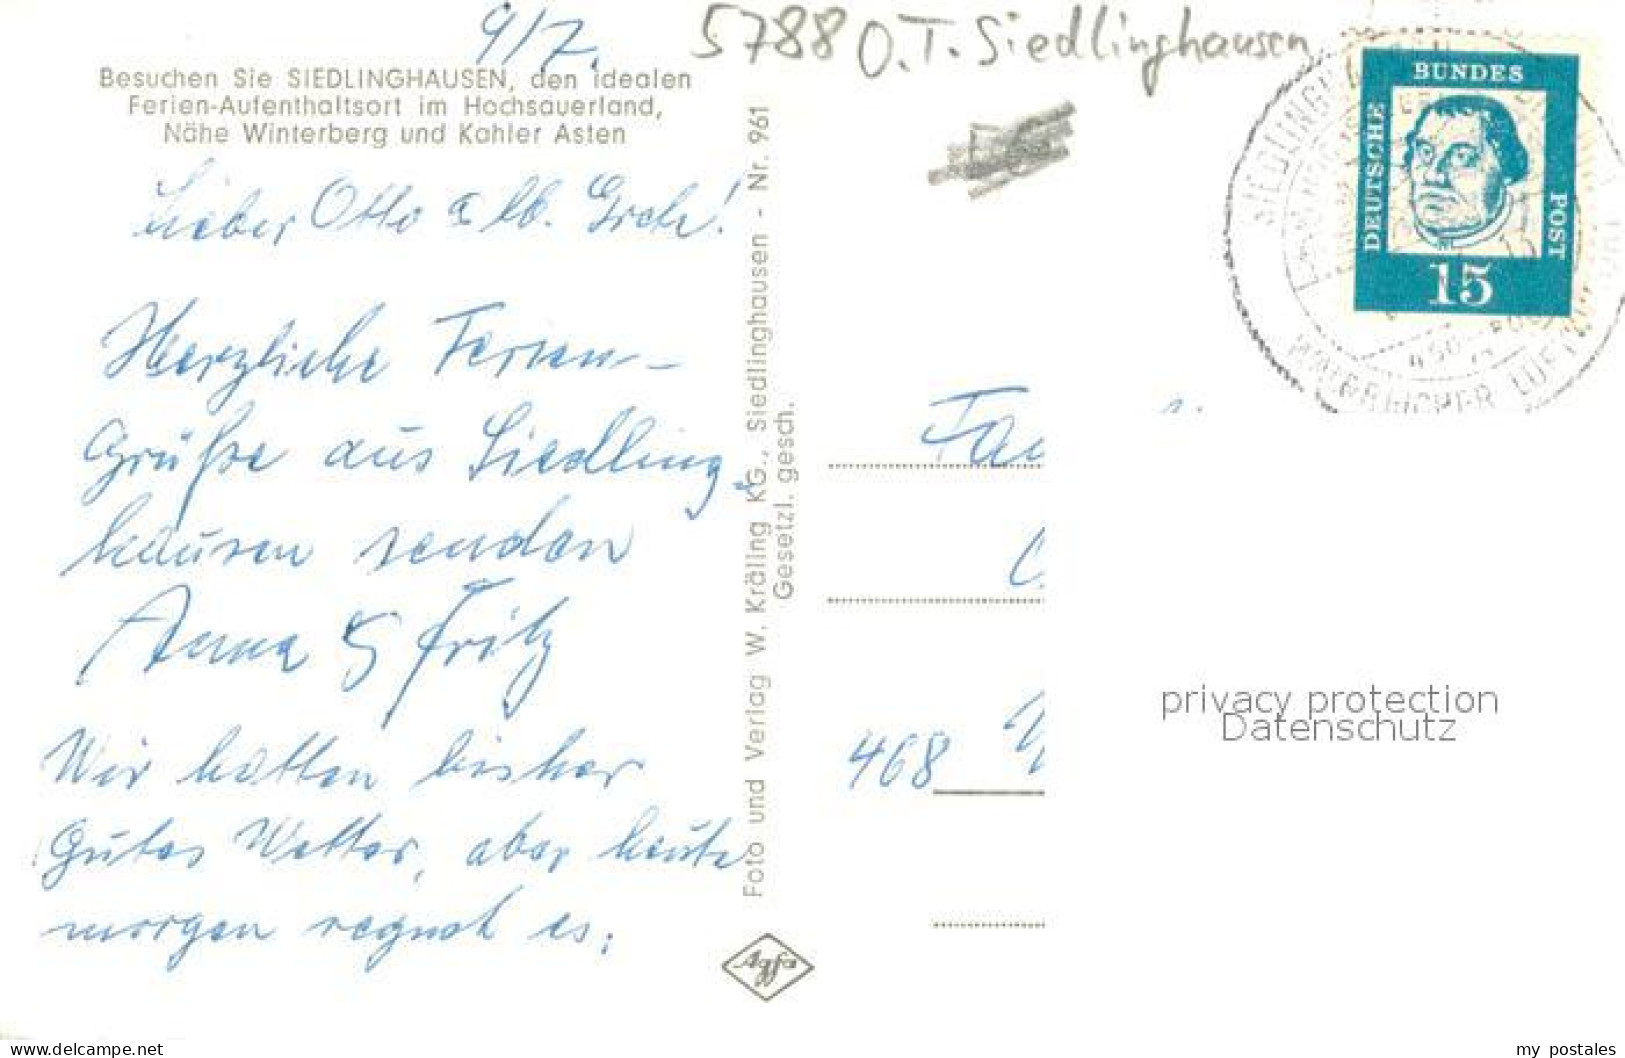 9/7.
5788 O.T. Siedlinghausen
Besuchen Sie SIEDLINGHAUSEN, den idealen
Ferien-Aufenthaltsort im Hochsauerland,
Nähe Winterberg und Kahler Asten
Lieber Otto & lb. Grete!
Herzliche Ferien-
Grüße aus Siedling-
hausen senden
Anna & Fritz
Wir hatten bisher
Gutes Wetter, aber heute
morgen regnet es.
Foto und Verlag W. Kräling KG., Siedlinghausen - Nr. 961
Gesetzl. gesch.
Agfa
DEUTSCHE
BUNDES
POST
15
SIEDLINGH
468
privacy protection
Datenschutz
www.delcampe.net
my_postales